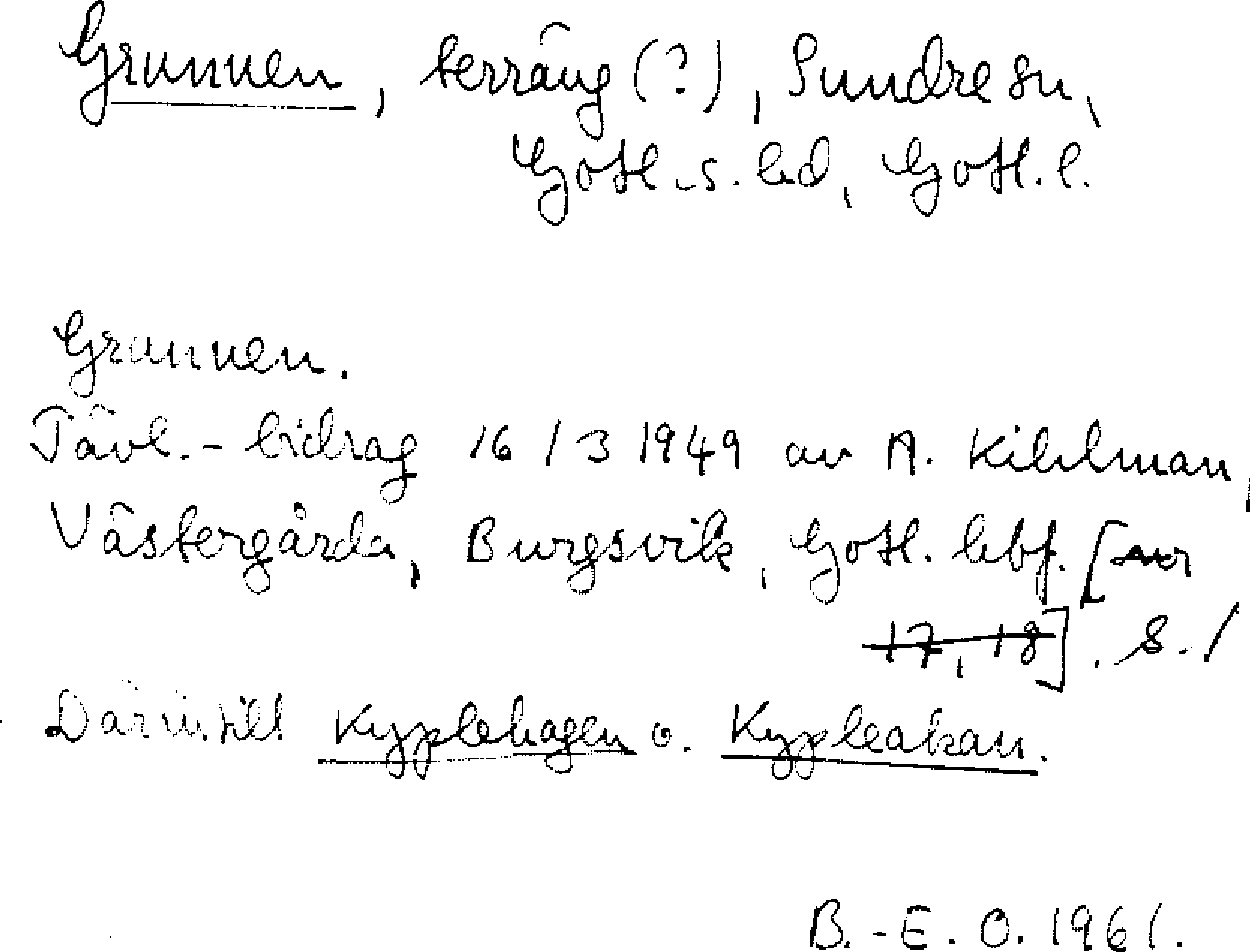 Grunnen, terräng (?), Sundre sn,
Gotl. s. hd, Gotl. l.
Grunnen.
Tävl.-bidrag 16/3 1949 av A. Kihlman,
Västergårda, Burgsvik, Gotl. lbf. [nr
17, 18]. S. 1
Därintill Kyplehagen o. Kypleakan.
B.-E. O. 1961.